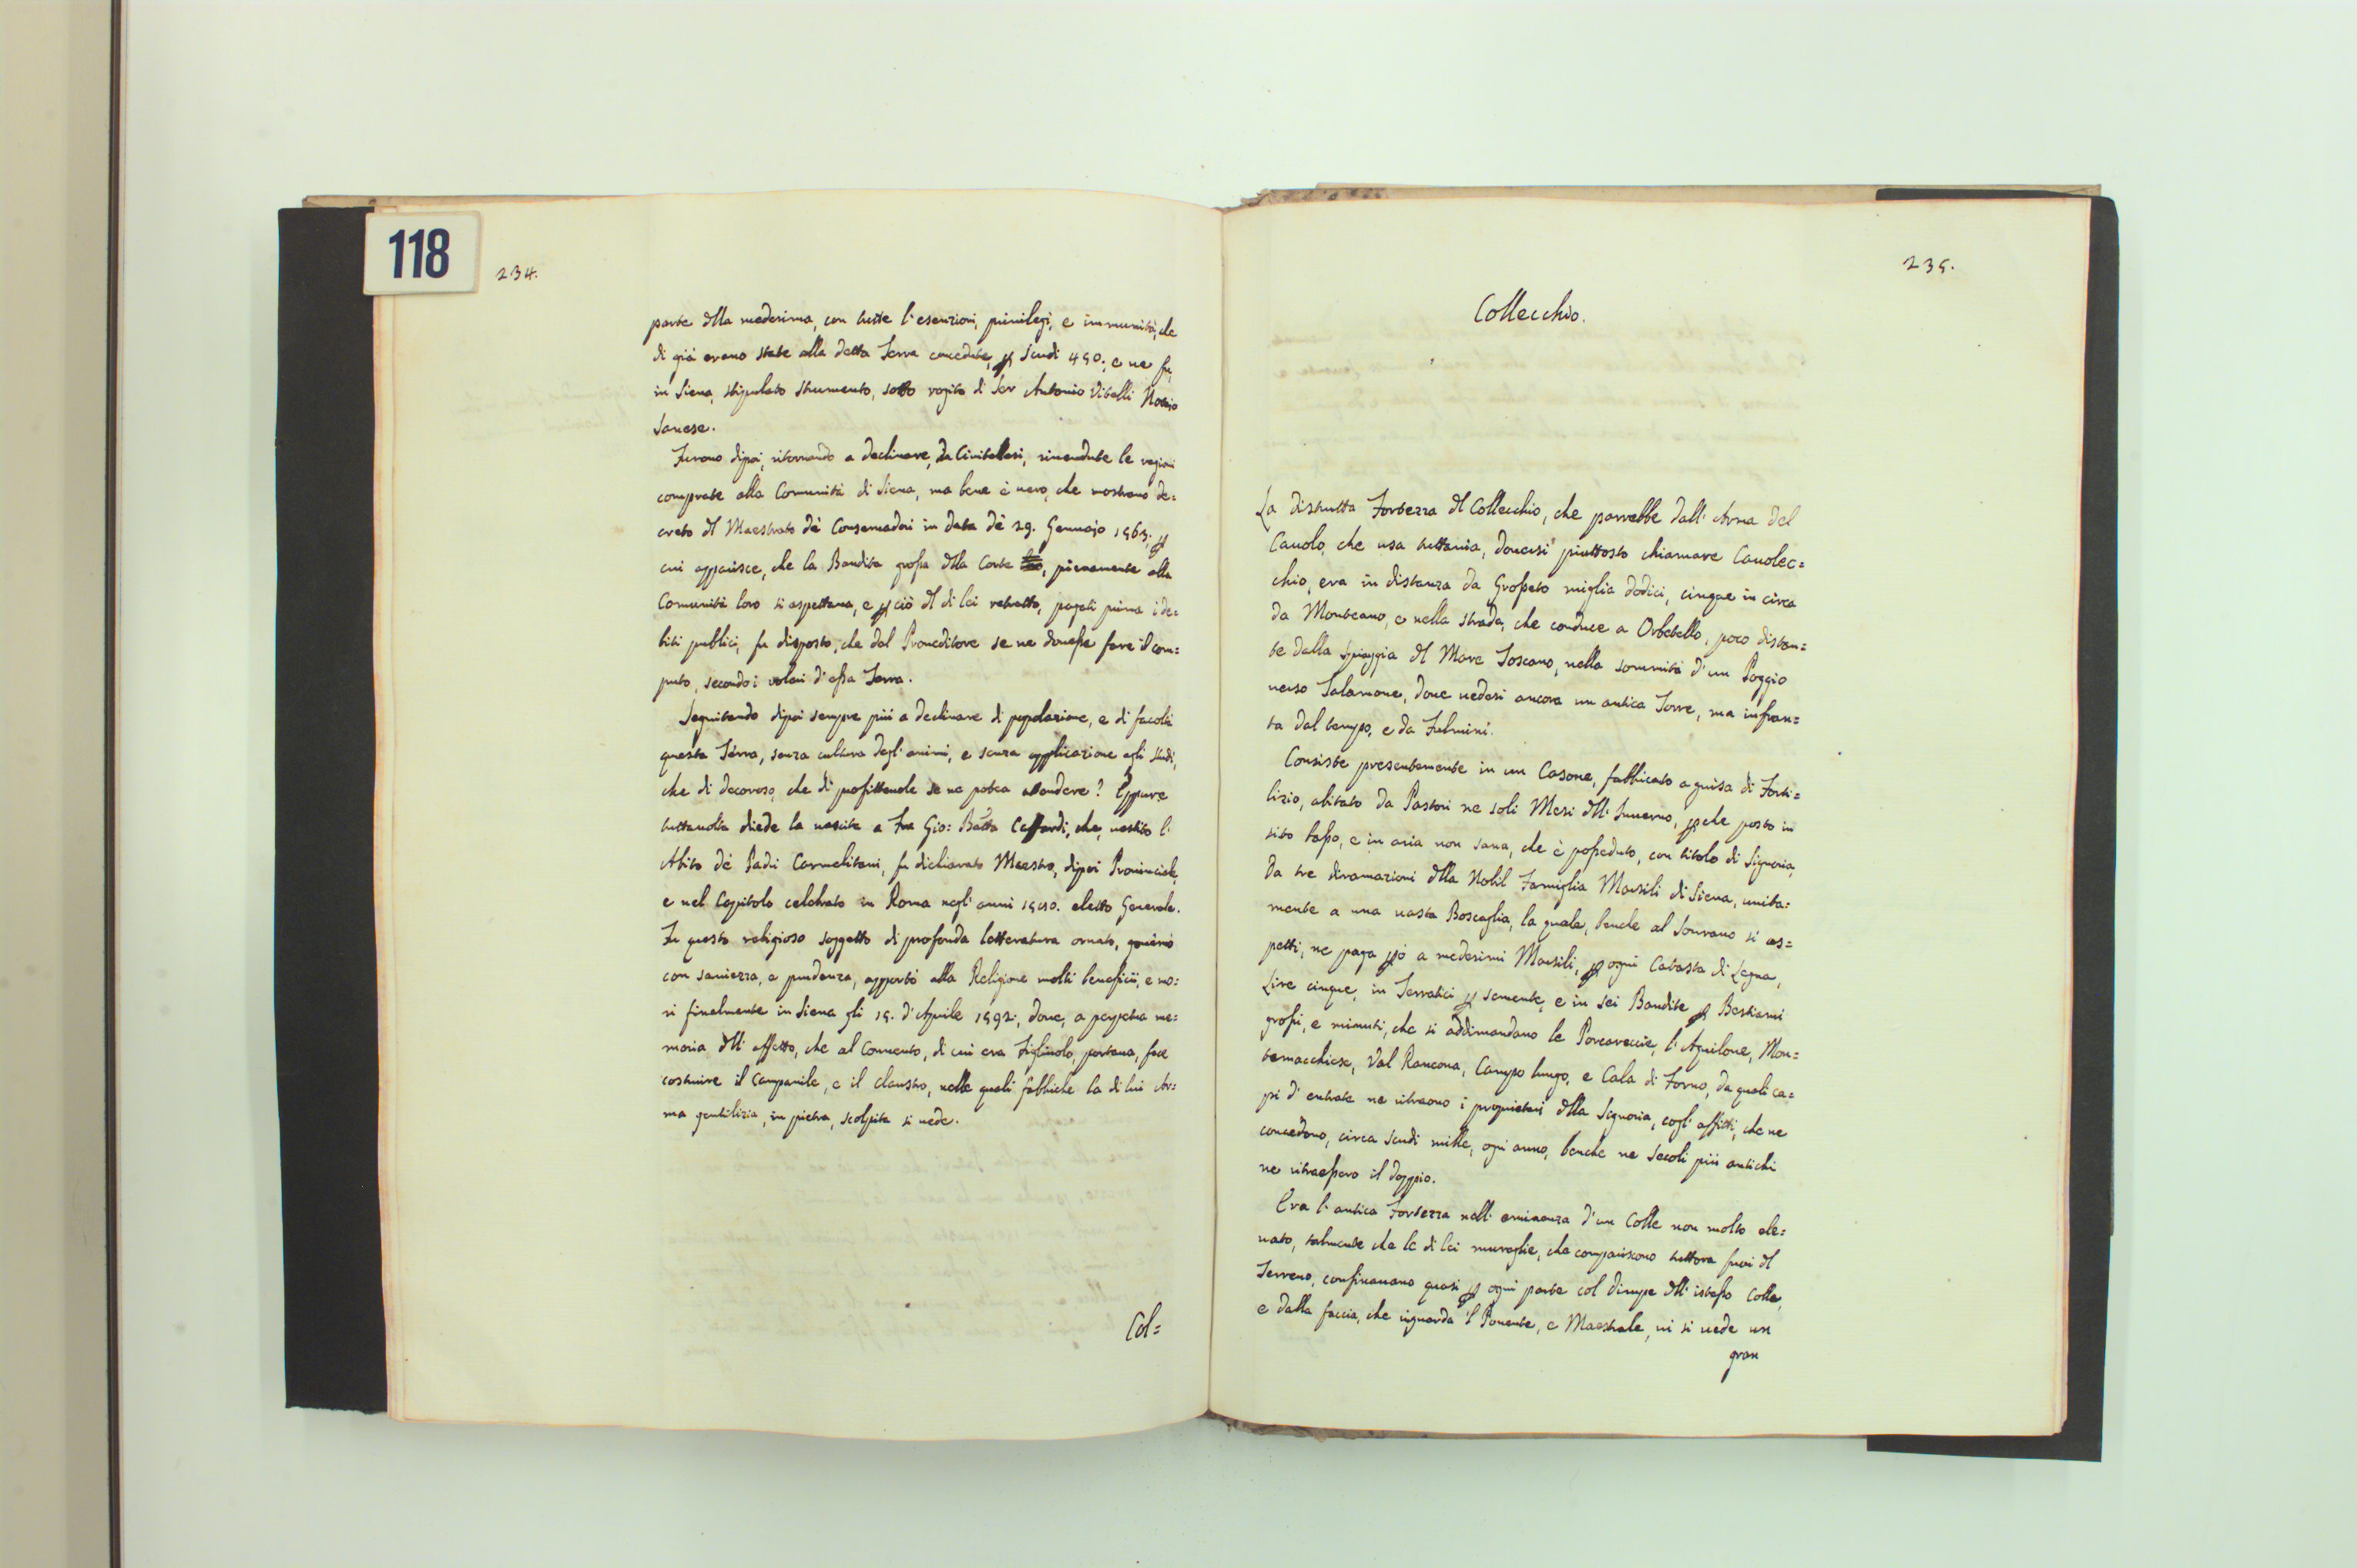 118
234.
parte della medesima, con tutte l'esenzioni, privilegi, e immunità, che
di già erano state alla detta Terra concedute, p Scudi 450; e ne fu,
in Siena, stipulato strumento, sotto rogito di Ser Antonio Vitelli Notaio
Sanese.
Furono dipoi, ritornando a declinare, da Civitellesi, rivendute le ragioni
comprate alla Comunità di Siena, ma bene è vero, che mostrano de=
creto del Maestrato de' Conservadori in data de' 29. Gennajo 1563. p
cui apparisce, che la Bandita grossa della Corte, pienamente alla
Comunità loro si aspettava, e p ciò del di lei retratto, pagati prima i de=
biti publici, fu disposto, che dal Proveditore se ne dovesse fare il com=
puto, secondo i voleri d'essa Terra.
Seguitando dipoi sempre più a declinare di popolazione, e di facoltà
questa Terra, senza cultura degl'animi, e senza applicazione agli studi,
che di decoroso, che di profittevole se ne potea attendere? Eppure
tuttavolta diede la nascita a Fra Gio: Batta Caffardi, che, vestito l'
Abito de' Padri Carmelitani, fu dichiarato Maestro, dipoi Provinciale,
e nel Capitolo celebrato in Roma negl'anni eletto Generale.
Fu questo religioso soggetto di profonda letteratura ornato, governò
con saviezza, e prudenza, apportò alla Religione molti beneficii, e mo=
rì finalmente in Siena gli 15. d'Aprile 1592., dove, a perpetua me=
moria dell'affetto, che al Convento, di cui era figliuolo, portava, fece
costruire il Campanile, e il claustro, nelle quali fabbriche la di lui Ar=
ma gentilizia, in pietra, scolpita si vede.
Col=
235.
Collecchio.
La distrutta Fortezza del Collecchio, che parrebbe dall'Arma del
Cavolo, che usa tuttavia, doversi piuttosto chiamare Cavolec=
chio, era in distanza da Grosseto miglia dodici, cinque in circa
da Monteano, e nella strada, che conduce a Orbetello, poco distan=
te dalla Spiaggia del Mare Toscano, nella sommità d'un Poggio
verso Talamone, dove vedesi ancora un antica Torre, ma infran=
ta dal tempo, e da Fulmini.
Consiste presentemente in un Casone, fabbricato a guisa di Forti=
lizio, abitato da Pastori ne soli Mesi dell'Inverno, p che posto in
sito basso, e in aria non sana, che è posseduto, con titolo di Signoria,
da tre diramazioni della Nobil Famiglia Marsili di Siena, unita=
mente a una vasta Boscaglia, la quale, benche al Sovrano si as=
petti, ne paga p ò a medesimi Marsili, p ogni Catasta di Legna,
Lire cinque, in Terratici p semente, e in sei Bandite p Bestiami
grossi, e minuti, che si addimandano le Porcareccie, l'Aquilone, Mon=
temacchiese, Val Rancona, Campo lungo, e Cala di Forno, da quali ca=
pi d'entrate ne ritraono i proprietari della Signoria, cogl'affitti, che ne
concedono, circa scudi mille, ogni anno, benche ne Secoli più antichi
ne ritraessero il doppio.
Era l'antica Fortezza nell'eminenza d'un Colle non molto ele=
vato, talmente che le di lei muraglie, che compariscono tuttora fuori del
Terreno, confinavano quasi p ogni parte col dirupe dell'istesso Colle,
e dalla faccia, che riguarda 'l Ponente, e Maestrale, vi si vede un
gran